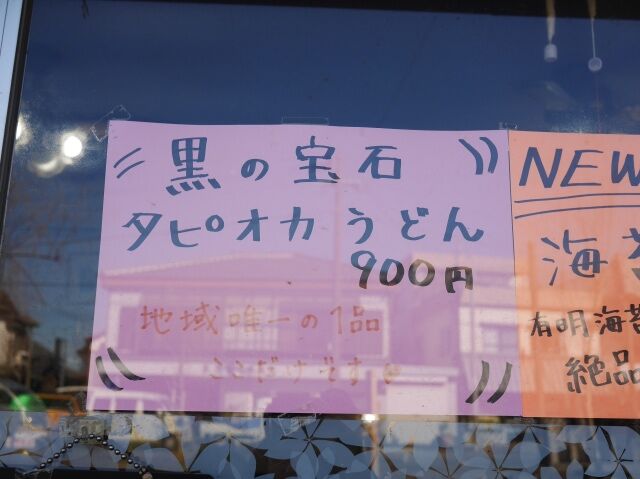 黒の宝石
タピオカうどん
900円
地域唯一の1品
ここだけです
NEW
海苔
有明海苔
絶品